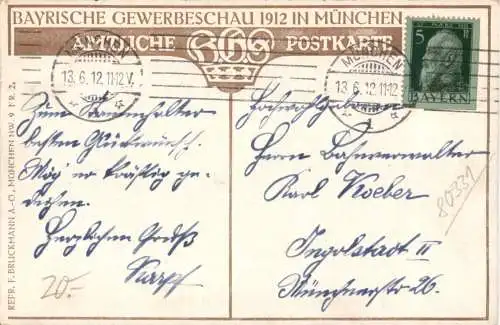 BAYRISCHE GEWERBESCHAU 1912 IN MÜNCHEN
AMTLICHE POSTKARTE
MÜNCHEN
13.6.12.11-12V.
1
MÜNCHEN
13.6.12.11-12
1
5
BAYERN
Zum
besten Glückwunsch.
Mög' er kräftig ge-
deihen.
Herzlichen Gruß
Hochwohlgeboren
Herrn Bahnverwalter
Karl Koeber
Ingolstadt II
Münchnerstr 26.
80331
20.-
REPR. F. BRUCKMANN A.-G., MÜNCHEN NW. 9 P 2 2.